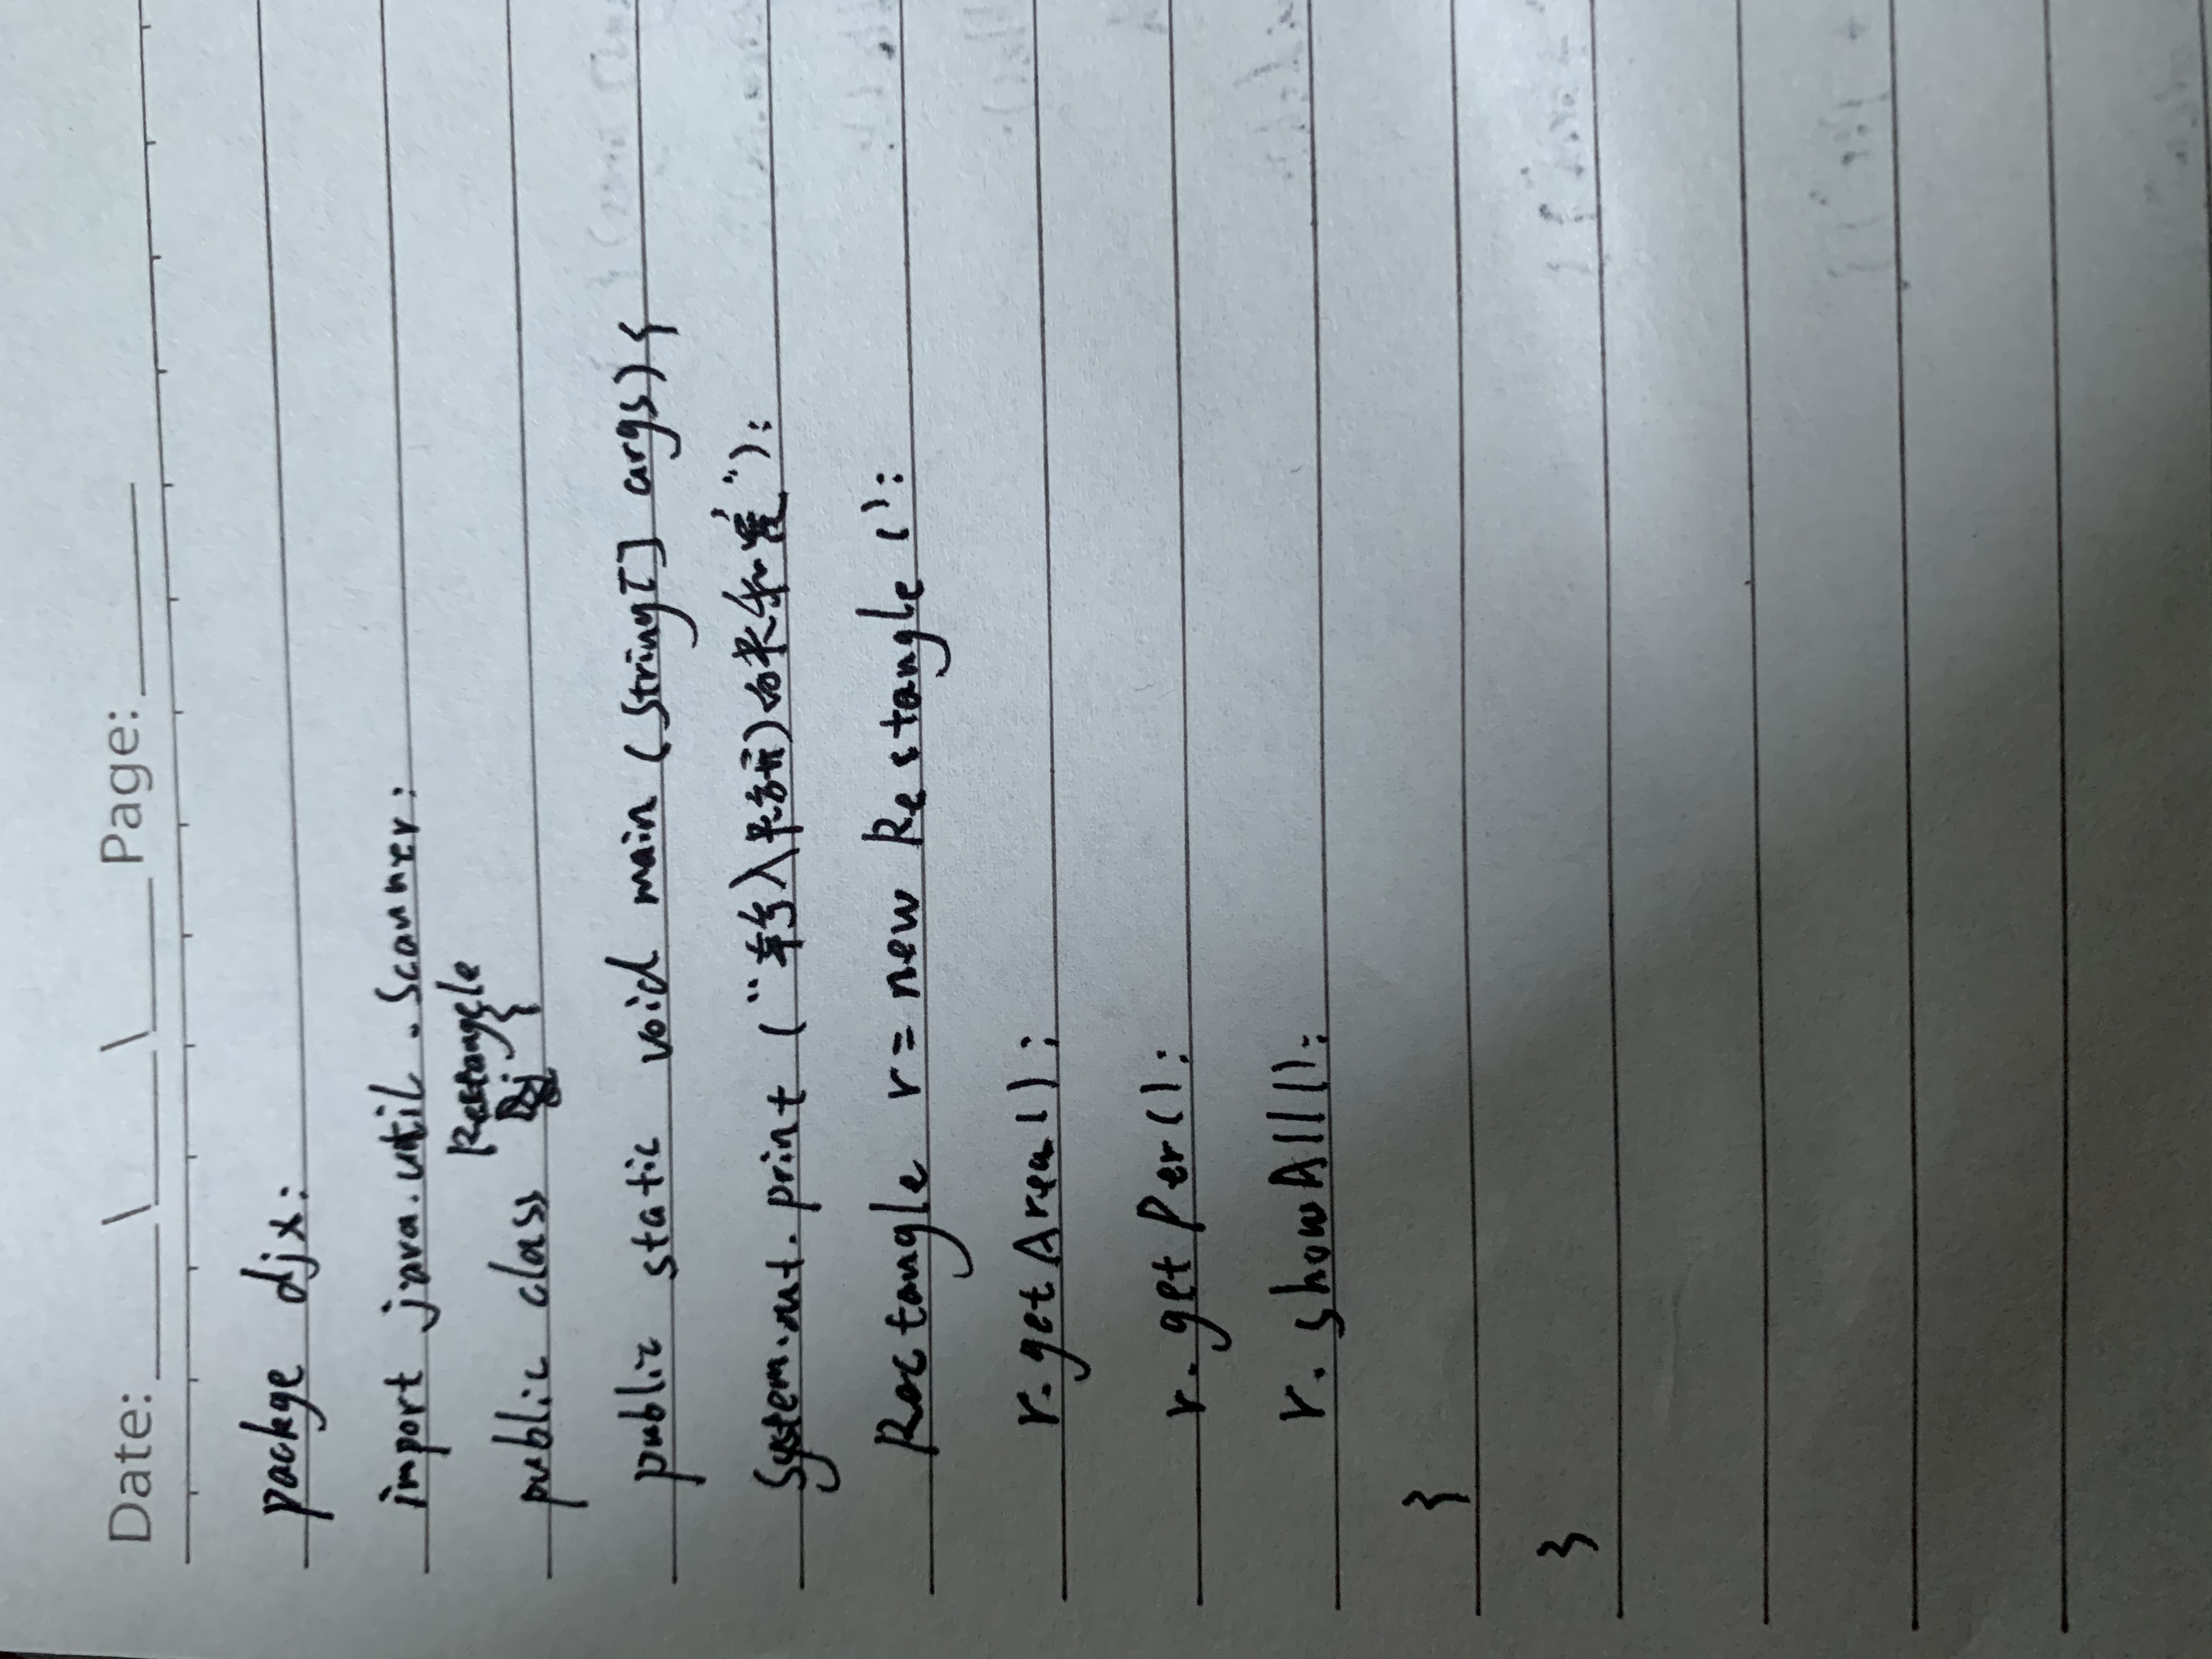 Date: ___/___/___ Page: ___
package djx;
import java.until.Scanner;
Rectangle
public class {
public static void main (String[] args){
System.out.print ("输入长方形的长和宽");
Rectangle r = new Restangle ();
r.getArea();
r.getPer();
r.showAll();
}
}